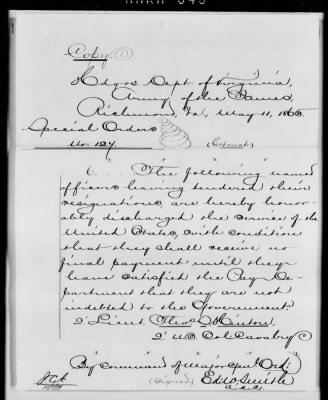 Copy
Hdqrs Dept of Virginia,
Army of the James,
Richmond, Va, May 11, 1865.
Special Orders
No 127.
(Extract)
6. The following named
officers having tendered their
resignations, are hereby honor-
ably discharged the service of the
United States, with condition
that they shall receive no
final payment until they
have satisfied the Pay De-
partment that they are not
indebted to the Government.
2' Lieut. Theo.
2' U.S. Col. Cavalry
By command of Major Genl Ord:
(Signed) Ed W. Smith
A.A.G.